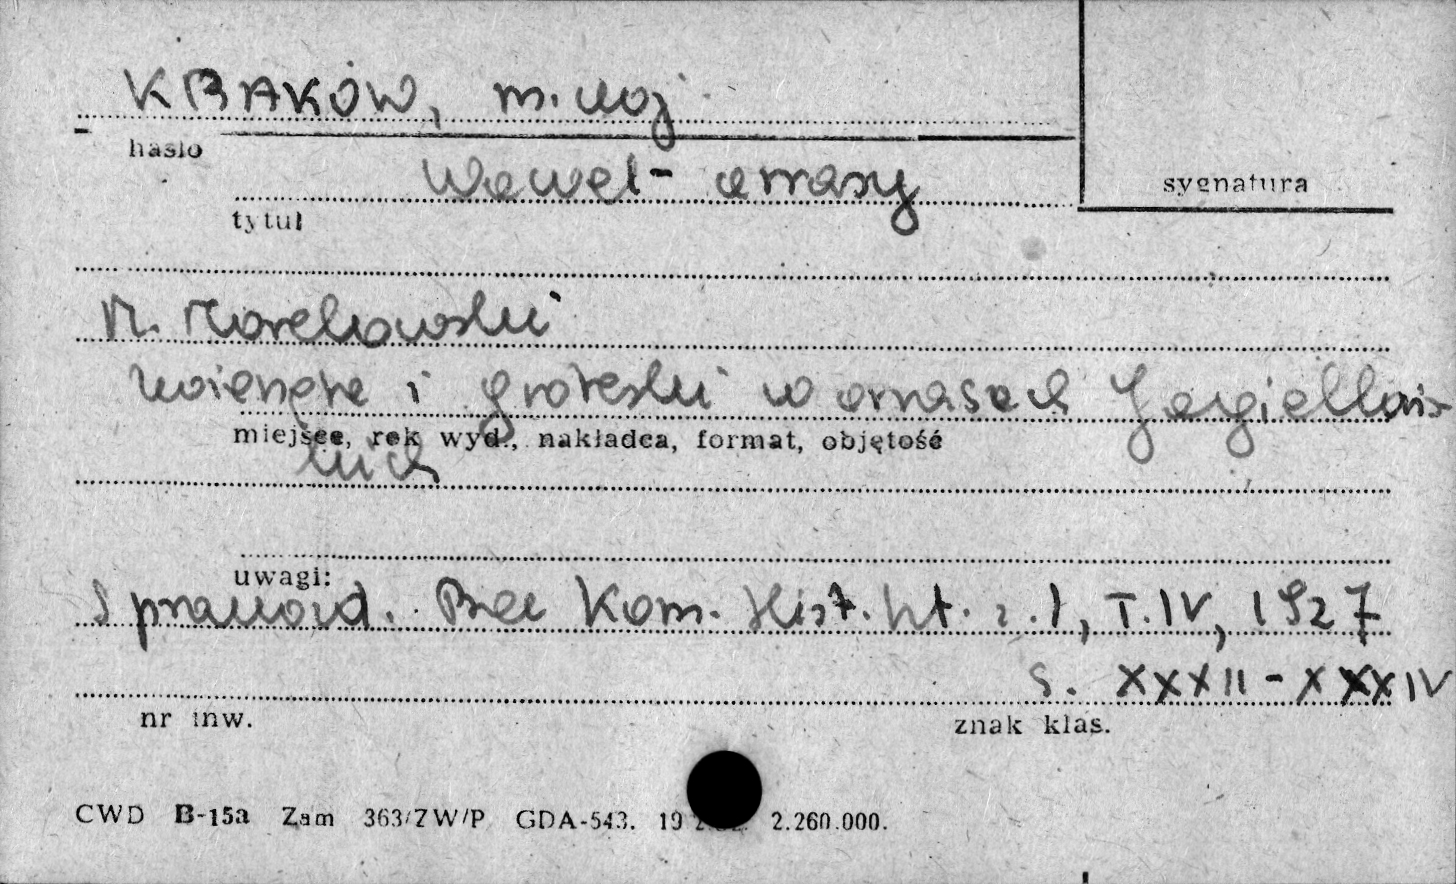 KRAKÓW, m. woj
hasło
Wawel - arrasy
sygnatura
tytuł
M. Morelowski
Zwierzęta i groteski w arrasach Jagielloń-
miejsce, rok wyd., nakładca, format, objętość
skich
uwagi:
Sprawozd. Prac Kom. Hist. Szt. z. 1, T. IV, 1927
s. XXXII - XXXIV
nr inw.
znak klas.
CWD B-15a Zam 363/ZW/P GDA-543. 2.260.000.